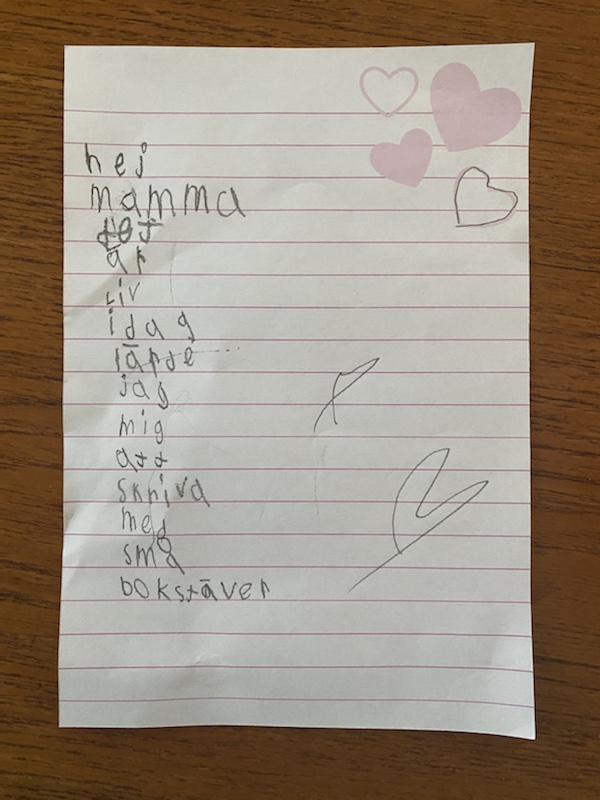 hej
mamma
det
är
Liv
idag
lärde
jag
mig
att
skriva
med
små
bokstäver